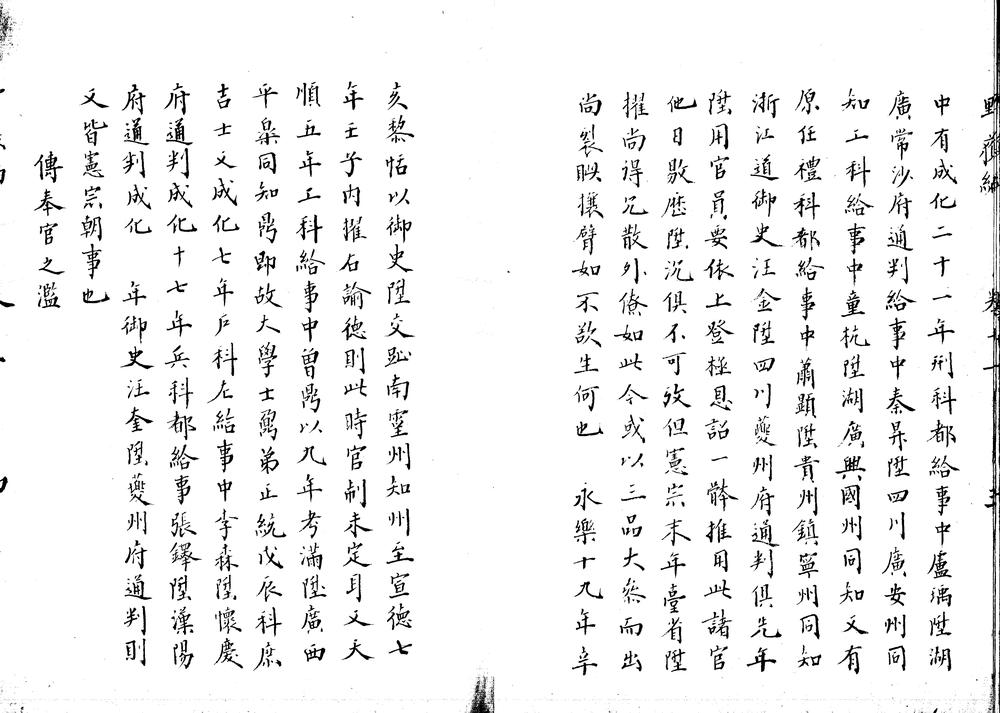 野獲編 卷十一
中有成化二十一年刑科都給事中盧瑀陞湖
廣常沙府通判給事中秦昇陞四川廣安州同
知工科給事中童杭陞湖廣興國州同知又有
原任禮科都給事中蕭顯陞貴州鎮寧州同知
浙江道御史汪金陞四川夔州府通判俱先年
陞用官員要依上登極恩詔一體推用此諸官
他日敭歷陞沉俱不可攷但憲宗末年臺省陞
擢尚得冗散外僚如此今或以三品大叅而出
尚裂眦攘臂如不欲生何也 永樂十九年辛
亥黎恬以御史陞交趾南靈州知州至宣德七
年壬子內擢右諭德則此時官制未定耳又天
順五年工科給事中曾鼎以九年考滿陞廣西
平樂同知鼎即故大學士鶴弟正統戊辰科庶
吉士又成化七年戶科左給事中李森陞懷慶
府通判成化十七年兵科都給事張鐸陞漢陽
府通判成化 年御史汪奎陞夔州府通判則
又皆憲宗朝事也
傳奉官之濫